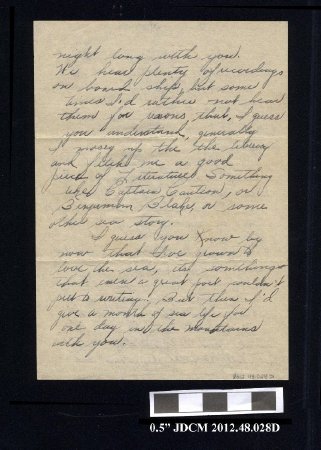 night long with you.
We hear plenty of recordings
on board ship, but some
times I'd rather not hear
them for reasons, that, I guess
you understand, generally
I mosey up the the library
and take me a good
piece of Literature Something
like Captain Caution, or
Benjamin Blake, or some
other sea story.
I guess you know by
now that I've grown to
love the sea, its something
that even a great poet couldn't
put to writing, But then I'd
give a month of sea life for
one day in the mountains
with you.
0.5" JDCM 2012.48.028D